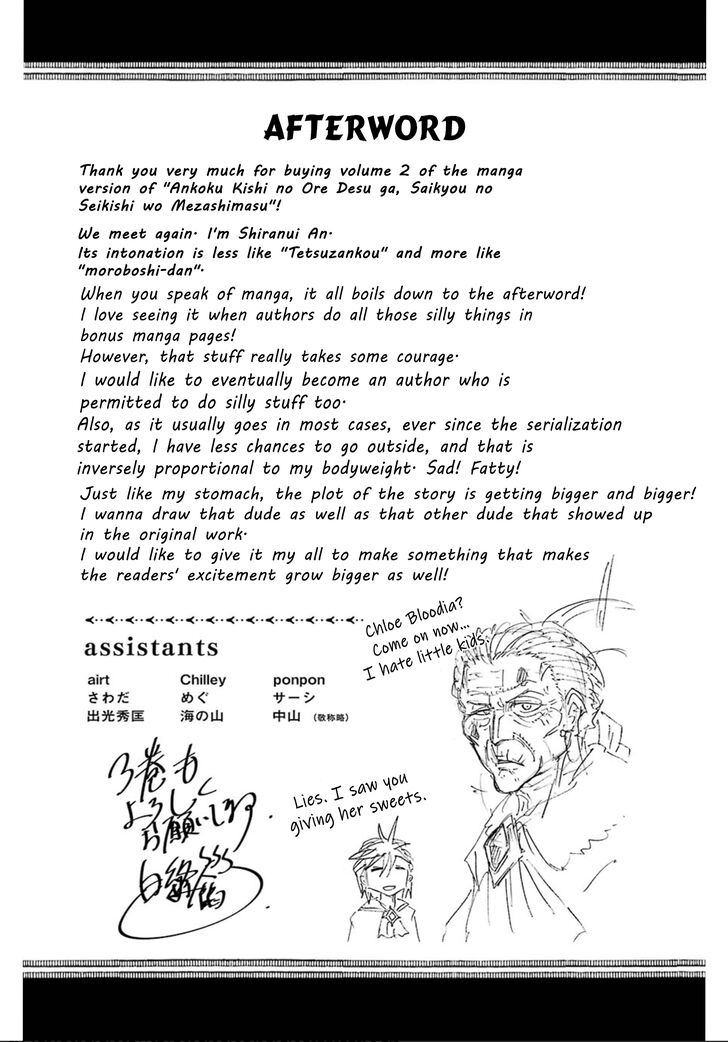 AFTERWORD
Thank you very much for buying volume 2 of the manga
version of "Ankoku Kishi no Ore Desu ga, Saikyou no
Seikishi wo Mezashimasu"!
We meet again. I'm Shiranui An.
Its intonation is less like "Tetsuzankou" and more like
"moroboshi-dan".
When you speak of manga, it all boils down to the afterword!
I love seeing it when authors do all those silly things in
bonus manga pages!
However, that stuff really takes some courage.
I would like to eventually become an author who is
permitted to do silly stuff too.
Also, as it usually goes in most cases, ever since the serialization
started, I have less chances to go outside, and that is
inversely proportional to my bodyweight. Sad! Fatty!
Just like my stomach, the plot of the story is getting bigger and bigger!
I wanna draw that dude as well as that other dude that showed up
in the original work.
I would like to give it my all to make something that makes
the readers' excitement grow bigger as well!
assistants
airt Chilley ponpon
さわだ めぐ サーシ
出光秀匡 海の山 中山 (敬称略)
Chloe Bloodia?
Come on now...
I hate little kids.
Lies. I saw you
giving her sweets.
3巻も
よろしく
お願いします